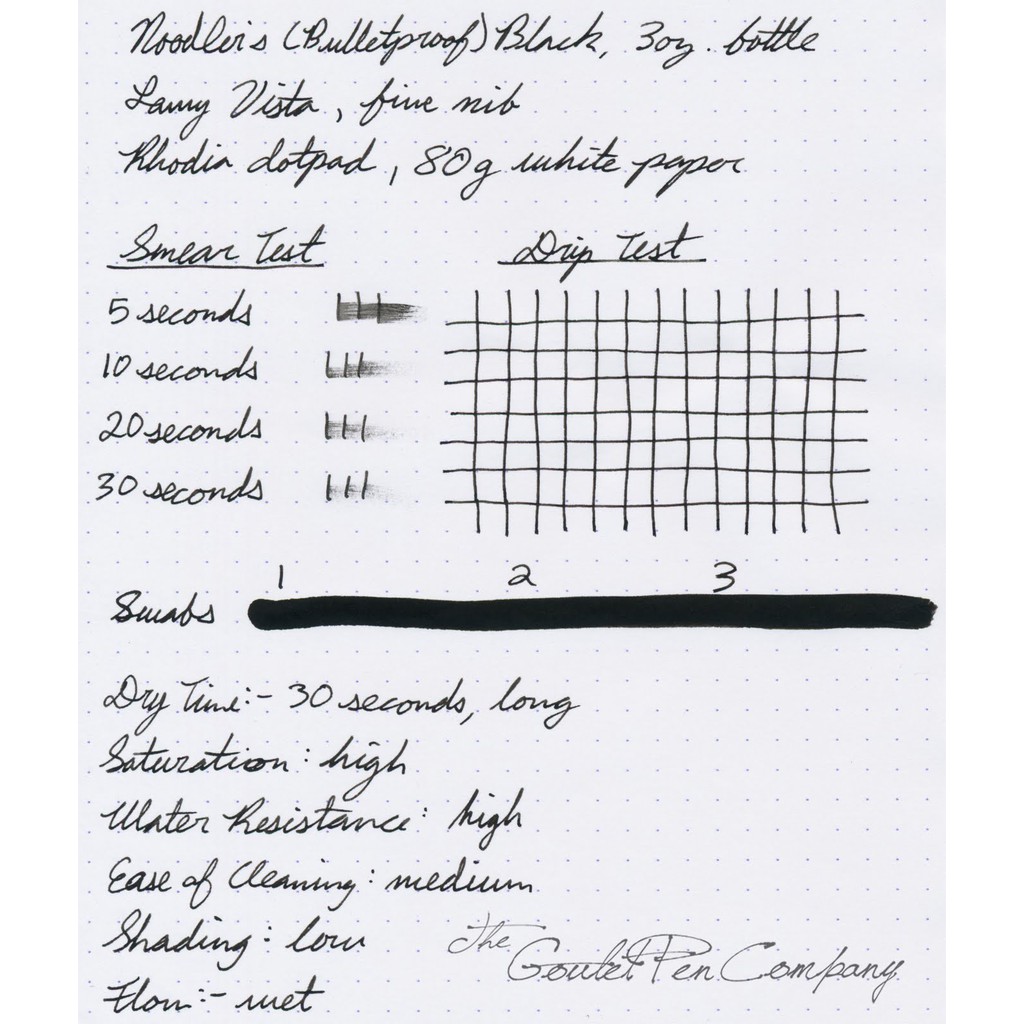 Noodler's (Bulletproof) Black, 3oz. bottle
Lamy Vista, fine nib
Rhodia dotpad, 80g white paper
Smear Test
Drip Test
5 seconds
10 seconds
20 seconds
30 seconds
1 2 3
Swabs
Dry Time:- 30 seconds, long
Saturation: high
Water Resistance: high
Ease of Cleaning: medium
Shading: low
Flow:- wet
The Goulet Pen Company